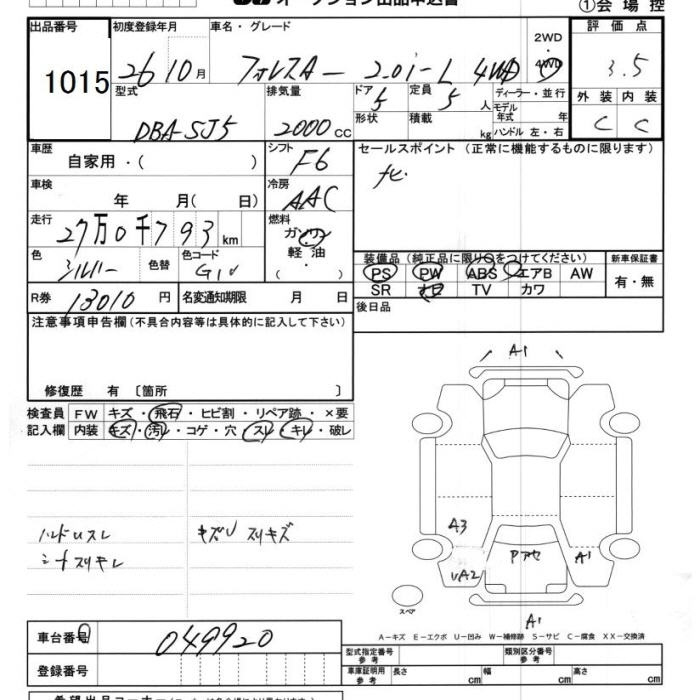 オークション出品申込書
①会場控
出品番号
1015
初度登録年月
26 10月
車名・グレード
フォレスター 2.0i-L 4WD
2WD・4WD
評価点
3.5
型式
DBA-SJ5
排気量
2000 cc
ドア
5
定員
5 人
形状
積載
kg
ディーラー・並行
モデル年式 年
ハンドル 左・右
外装
内装
C
C
車歴
自家用・( )
シフト
F6
セールスポイント(正常に機能するものに限ります)
ナビ
車検
年 月( 日)
冷房
AAC
走行
27万0千793 km
燃料
ガソリン
軽油
・
( )
色
シルバー
色替
色コード
G1U
装備品(純正品に限り○をつけてください)
新車保証書
PS PW ABS エアB AW
SR ナビ TV カワ
有・無
R券
13010 円
名変通知期限 月 日
後日品
注意事項申告欄(不具合内容等は具体的に記入して下さい)
修復歴 有 〔箇所 〕
検査員
記入欄
FW キズ・飛石・ヒビ割・リペア跡・×要
内装 キズ・汚レ・コゲ・穴・スレ・キレ・破レ
ハンドルスレ
シートスリキレ
キズU スリキズ
A1
A3
Pアセ
A1
UA2
スペア
A1
A-キズ E-エクボ U-凹み W-補修跡 S-サビ C-腐食 XX-交換済
車台番号
049920
登録番号
型式指定番号
参考
類別区分番号
参考
車庫証明用
参考
長さ cm
幅 cm
高さ cm
希望出品コーナー